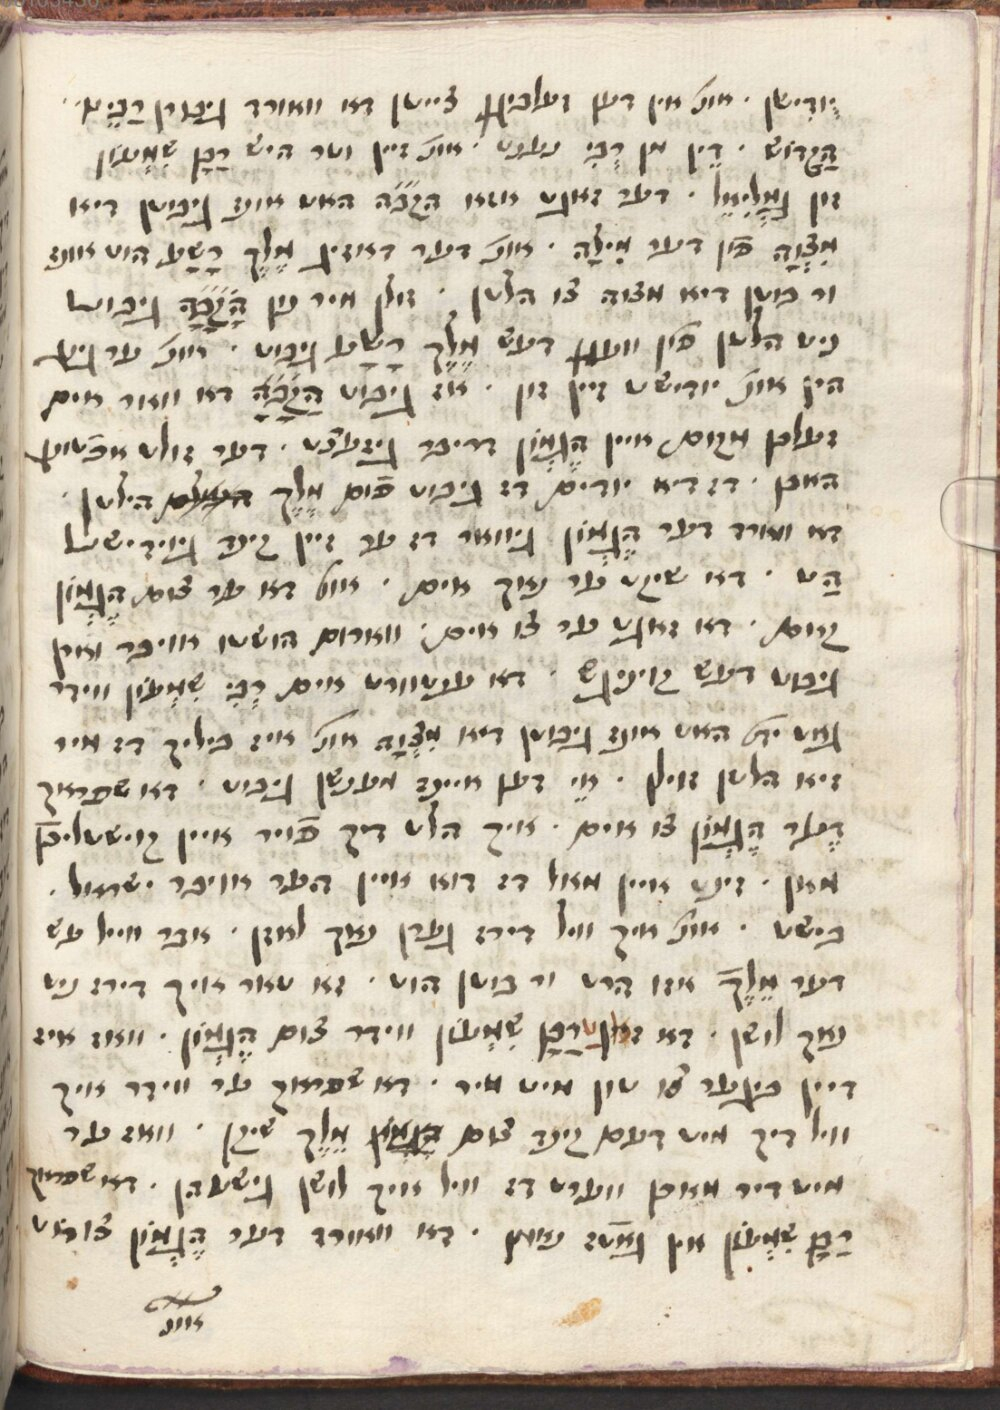 יודישן · אונ' אין דען זעלביגן צייטן דא ווארד גיבורן רַבֵּינוּ
הַקָדוֹשׁ · דֵין מן רַבִּי נענט · אונ' זיין וטר היש רַבָּן שִׁמְעוֹן
זון גַמְלִיאֵל · דער זאגט אזא הקב״ה האט אונז גיבוטן דיא
מִצְוָה פֿון דער מִילָה · אונ' דער דאזיג מֶלֶךְ רָשָׁע הוט אונז
ור בוטן דיא מצוה צו הלטן · זולן מיר נון הַקָבָּ״ה גיבוט
ניט הלטן פֿון וועגן דעש מֶלֶךְ רָשָׁע גיבוט · אונ' ער גינג
הין אונ' יודישט זיין זון · אז גיבוט הַקָבָּ״ה דא וואר אים
זעלבן מקום איין הֶגְמוֹן דריבר גיזעצט · דער זולט אכטונג
האבן · דז דיא יודים דז גיבוט פֿום מֶלֶךְ הילטן ·
דא ווארד דער הֶגְמוֹן גיוואר דז ער זיין קינד גיוידישט
הַט · דא שיקט ער נאך אים · אונ' דא ער צום הֶגְמוֹן
קאם · דא זאגט ער צו אים · ווארום הושטו אוויבר מיין
גיבוט דעש קויניגש · דא ענטוורט אים רַבִּי שִׁמְעוֹן ווידר
גאט ית' האט אונז גיבוטן דיא מִצְוָה אונ' איז ביליך דז מיר
זיא הלטן זוילן · אֵיי דען איינז מענשן גיבוט · דא שפראך
דֶער הֶגְמוֹן צו אים · איך הלט דיך פֿויר איין קוישטליכן
מאן · זינט איין מאול דז דוא איין הער אויבר ישראל ·
בישט · אונ' איך וויל דירז גערן נאך לאזן · אבר ווייל עש
דער מֶלֶךְ אזו הרט ור בוטן הוט · זא טאר איך דירז ניט
נאך לושן · דא זאגט רַבָן שִׁמְעוֹן ווידר צום הֶגְמוֹן · וואז איז
דיין ביגער צו טון מיט מיר · דא שפראך ער ווידר איך
וויל דיך מיט דעם קינד צום מֶלֶךְ שיקן · וואז ער
מיט דיר מאכן ווערט דז וויל איך לושן גישעהן · דא שפראך
רַבָן שִׁמְעוֹן אין גאטז נאמן · דא ווארד דער הֶגְמוֹן צו ראט
אונ'